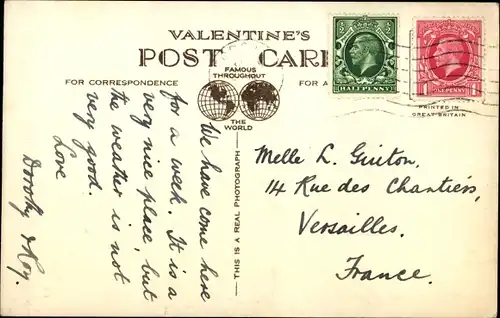 VALENTINE'S
POST CARD
FAMOUS
THROUGHOUT
FOR CORRESPONDENCE
FOR A
THE
WORLD
THIS IS A REAL PHOTOGRAPH
HALFPENNY
ONE PENNY
PRINTED IN
GREAT BRITAIN
We have come here
for a week. It is a
very nice place, but
the weather is not
very good.
Love
Dorothy & Roy.
Melle L. Guiton,
14 Rue des Chantiers,
Versailles.
France.